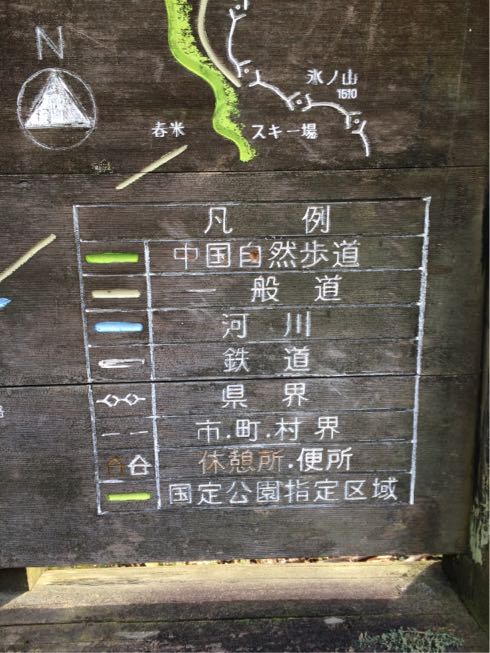 N
氷ノ山
1510
春米
スキー場
凡 例
中国自然歩道
一般道
河川
鉄道
県界
市.町.村界
休憩所.便所
国定公園指定区域